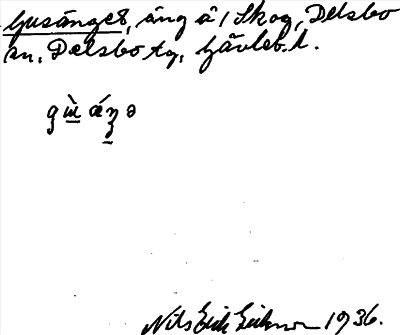 Gusänget, äng å 1 Skog, Delsbo
sn, Delsbo tg, Gävleb. l.
Nils Erik Eriksson 1936.